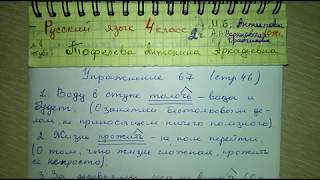 Русский язык 4 класс
2ч
Антипова
Тофелева Антонина Аркадьевна
Упражнение 67 (стр 46)
1. Воду в ступе толочь – вода и
будет. (О занятии бестолковым де-
лом, не приносящем ничего полезного)
2. Жизнь прожить – не поле перейти.
(О том, что жизнь сложная, прожить
её непросто).
3. За деревьями